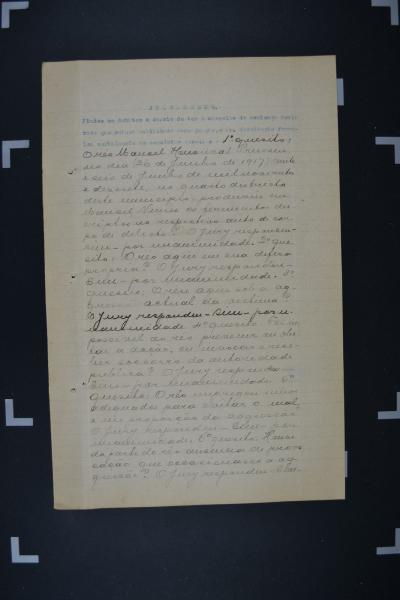 JULGAMENTO.
Findos os debates e
1º quesito:
O réo Manoel
no dia 26 de Junho de 1917, vinte
e seis de Junho de mil novecentos
e desesete, no quarto districto
deste municipio, produziu em
Manoel os ferimentos des-
criptos no respectivo auto de cor-
po de delicto? O Jury respondeu
Sim - por unanimidade. 2º que-
sito: O réo agiu em sua defesa
propria? O Jury respondeu -
Sim - por unanimidade. 3º
quesito: O réo agiu sob a ag-
gressão actual da victima?
O Jury respondeu - Sim - por u-
nanimidade. 4º quesito: Foi im-
possivel ao réo prevenir ou obs-
tar a acção, ou invocar e rece-
ber soccorro da autoridade
publica? O Jury respondeu -
Sim - por unanimidade. 5º
quesito: O réo empregou meios
adequados para evitar o mal,
e em proporção da aggressão?
O Jury respondeu - Sim - por
unanimidade. 6º quesito: Houve
da parte do réo ausencia de provo-
cação que occasionasse a ag-
gressão? O Jury respondeu - Sim -